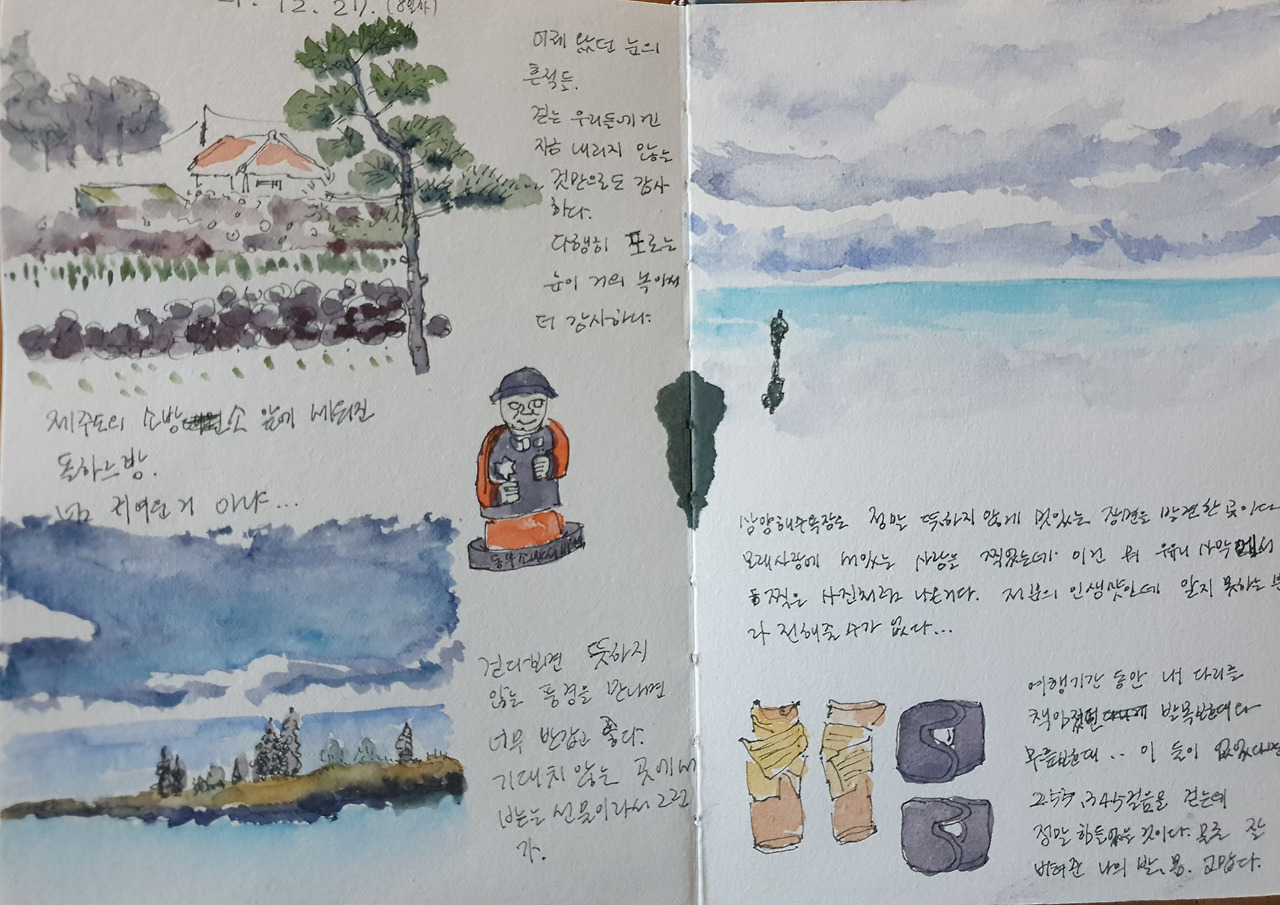 12. 27. (8일차)
어제 왔던 눈의
흔적들.
걷는 우리들에겐
지금 내리지 않는
것만으로도 감사
하다.
다행히 도로는
눈이 거의 녹아서
더 감사하다.
제주도의 소방서 앞에 세워진
돌하르방.
넘 귀여운거 아냐...
동부소방서
걷다보면 뜻하지
않는 풍경을 만나면
너무 반갑고 좋다.
기대치 않는 곳에서
받는 선물이라서 그런
가.
삼양해수욕장은 정말 뜻하지 않게 멋있는 장면을 발견한 곳이다
모래사장에 서있는 사람을 찍었는데 이건 뭐 유우니 사막에서
찍은 사진처럼 나온거다. 저분의 인생샷인데 알지 못하는 분
라 전해줄 수가 없다...
여행기간 동안 내 다리를
책임졌던 발목보호대와
무릎보호대.. 이 들이 없었다면
255,345걸음을 걷는데
정말 힘들었을 것이다. 물론 잘
버텨준 나의 발,몸. 고맙다.